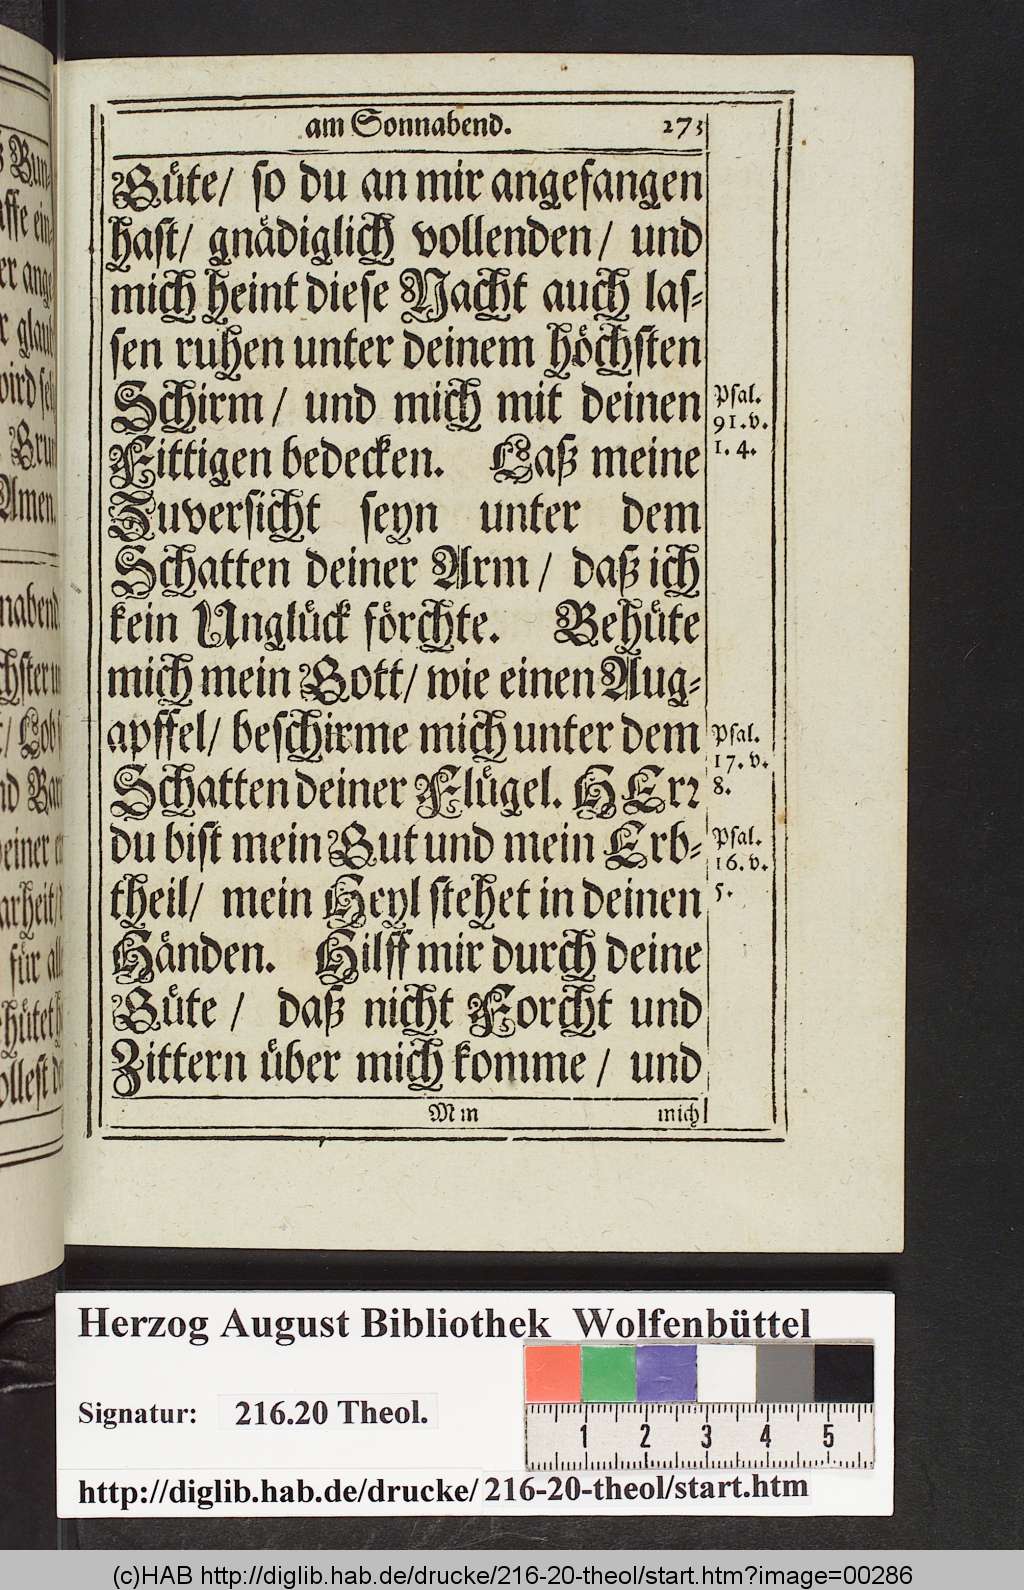 am Sonnabend. 273
Güte/ so du an mir angefangen
hast/ gnädiglich vollenden/ und
mich heint diese Nacht auch las-
sen ruhen unter deinem höchsten
Schirm/ und mich mit deinen
Fittigen bedecken. Laß meine
Zuversicht seyn unter dem
Schatten deiner Arm/ daß ich
kein Unglück förchte. Behüte
mich mein Gott/ wie einen Aug-
apffel/ beschirme mich unter dem
Schatten deiner Flügel. HErr
du bist mein Gut und mein Erb-
theil/ mein Heyl stehet in deinen
Händen. Hilff mir durch deine
Güte/ daß nicht Forcht und
Zittern über mich komme/ und
Mm mich
Psal.
91.v.
1. 4.
Psal.
17.v.
8.
Psal.
16.v.
5.
Herzog August Bibliothek Wolfenbüttel
Signatur: 216.20 Theol.
1 2 3 4 5
http://diglib.hab.de/drucke/216-20-theol/start.htm
(c)HAB http://diglib.hab.de/drucke/216-20-theol/start.htm?image=00286